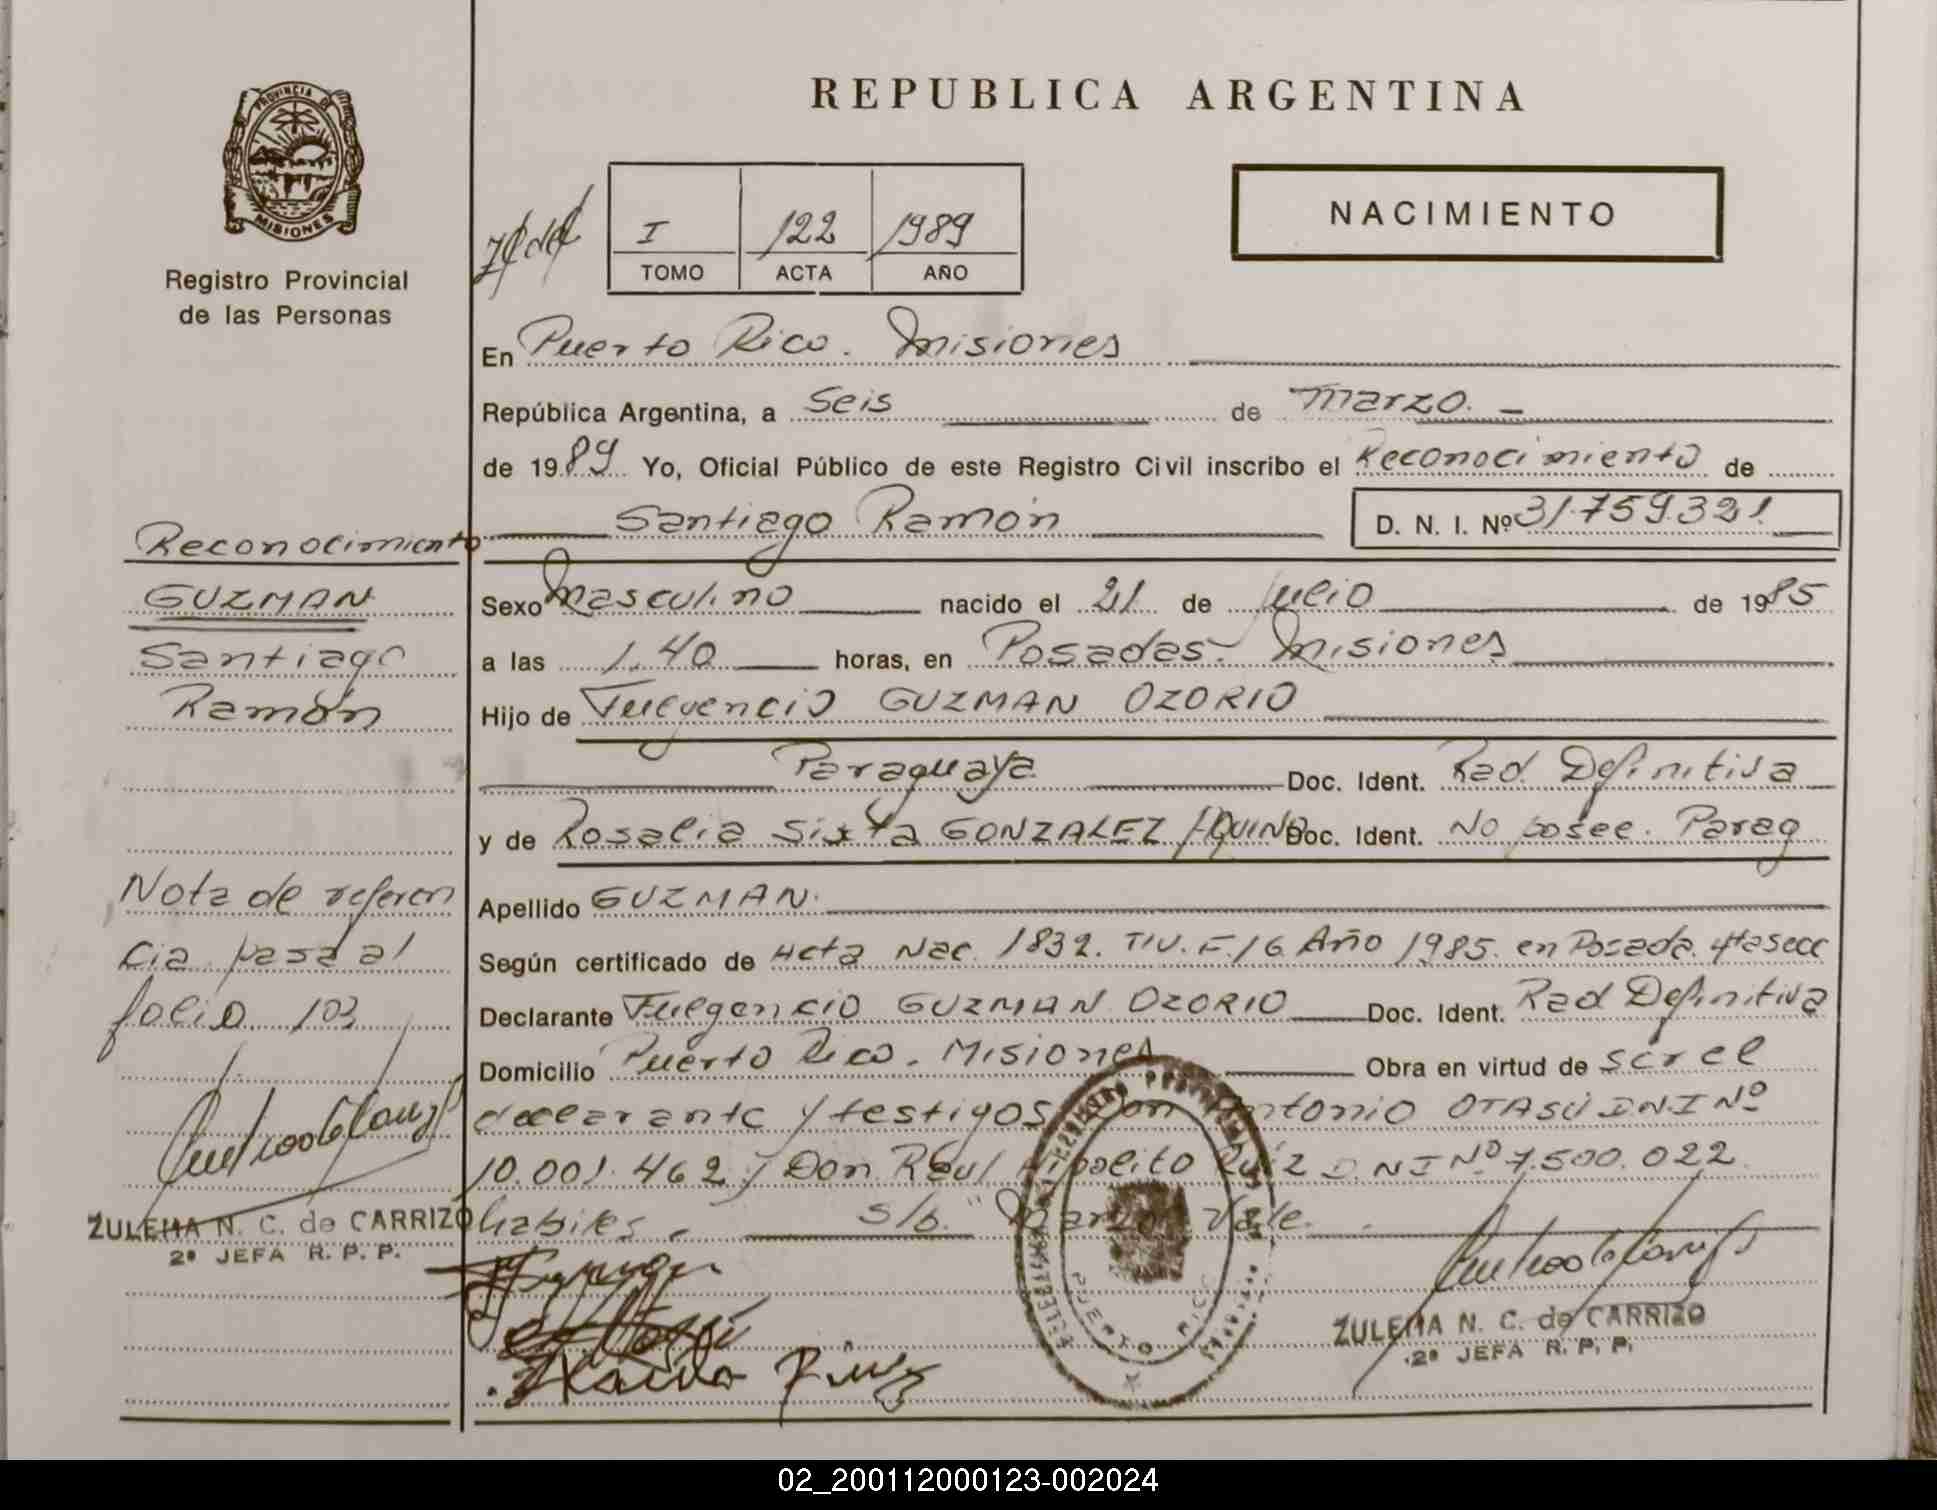 REPUBLICA ARGENTINA
PROVINCIA DE
MISIONES
Registro Provincial
de las Personas
I 122 1989
TOMO ACTA AÑO
NACIMIENTO
En Puerto Rico. Misiones
República Argentina, a Seis de Marzo. -
de 1989 Yo, Oficial Público de este Registro Civil inscribo el Reconocimiento de
Santiago Ramón D. N. I. Nº 31.759.321.
Sexo Masculino nacido el 21 de Julio de 1985
a las 1.40 horas, en Posadas- Misiones
Hijo de Fulgencio GUZMAN OZORIO
Paraguaya Doc. Ident. Rad. Definitiva
y de Rosalia Sixta GONZALEZ AQUINO Doc. Ident. No posee. Parag
Apellido GUZMAN.
Según certificado de Acta Nac. 1832. T.IV. F.16 Año 1985. en Posada. 4ta secc
Declarante Fulgencio GUZMAN OZORIO Doc. Ident. Rad Definitiva
Domicilio Puerto Rico. Misiones Obra en virtud de ser el
declarante y testigos Don Antonio OTASÚ D.N.I Nº
10.001.462 y Don Raul Hipolito Ruiz D.N.I Nº 7.500.022
habiles. s/b. "Marzo" Vale.
ZULEMA N. C. de CARRIZO
2ª JEFA R. P. P.
PUERTO RICO
Reconocimiento
GUZMAN
Santiago
Ramón
Nota de referen
cia pasa al
folio 103
ZULEMA N. C. de CARRIZO
2ª JEFA R. P. P.
02_200112000123-002024